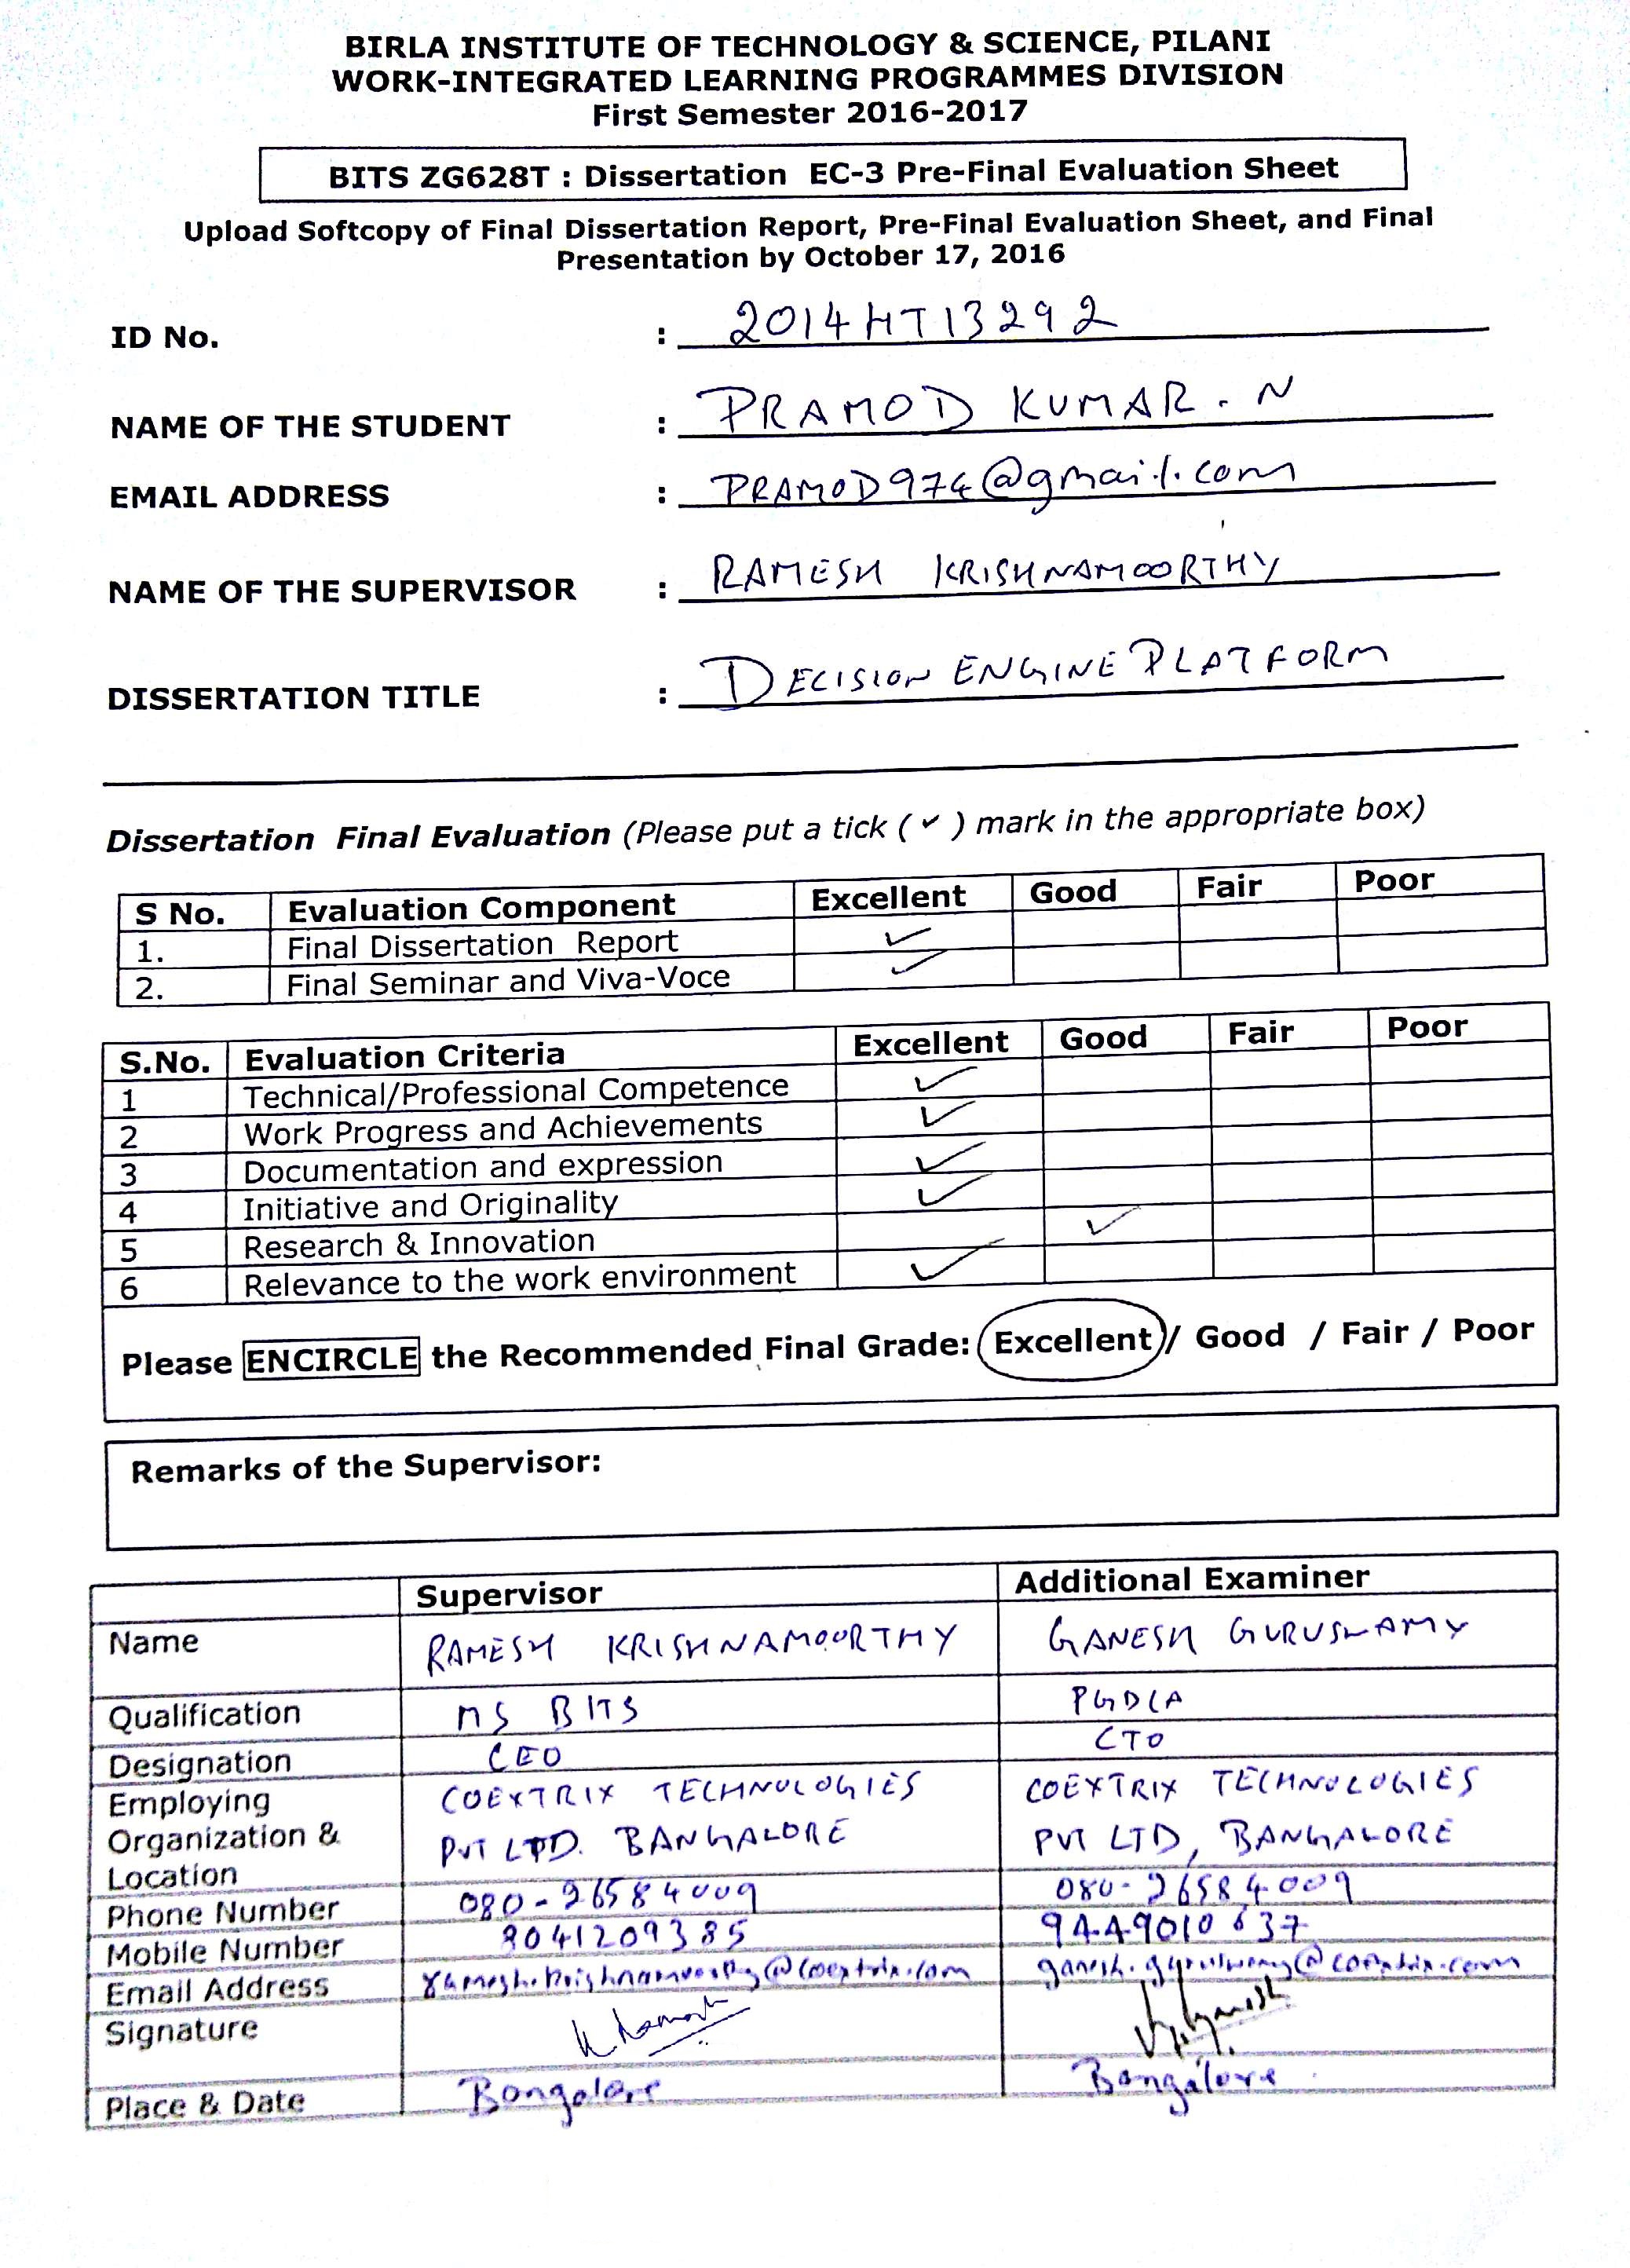 BIRLA INSTITUTE OF TECHNOLOGY & SCIENCE, PILANI
WORK-INTEGRATED LEARNING PROGRAMMES DIVISION
First Semester 2016-2017
BITS ZG628T : Dissertation EC-3 Pre-Final Evaluation Sheet
Upload Softcopy of Final Dissertation Report, Pre-Final Evaluation Sheet, and Final
Presentation by October 17, 2016
ID No. : 2014HT13292
NAME OF THE STUDENT : PRAMOD KUMAR. N
EMAIL ADDRESS : PRAMOD974@gmail.com
NAME OF THE SUPERVISOR : RAMESH KRISHNAMOORTHY
DISSERTATION TITLE : DECISION ENGINE PLATFORM
Dissertation Final Evaluation (Please put a tick ( ✔ ) mark in the appropriate box)
S No. Evaluation Component Excellent Good Fair Poor
1. Final Dissertation Report ✓
2. Final Seminar and Viva-Voce ✓
S.No. Evaluation Criteria Excellent Good Fair Poor
1 Technical/Professional Competence ✓
2 Work Progress and Achievements ✓
3 Documentation and expression ✓
4 Initiative and Originality ✓
5 Research & Innovation ✓
6 Relevance to the work environment ✓
Please ENCIRCLE the Recommended Final Grade: Excellent / Good / Fair / Poor
Remarks of the Supervisor:
Supervisor Additional Examiner
Name RAMESH KRISHNAMOORTHY GANESH GURUSWAMY
Qualification MS BITS PGDCA
Designation CEO CTO
Employing COEXTRIX TECHNOLOGIES COEXTRIX TECHNOLOGIES
Organization & PVT LTD. BANGALORE PVT LTD, BANGALORE
Location
Phone Number 080-26584009 080-26584009
Mobile Number 9449010637
Email Address ramesh.krishnamoorthy@coextrix.com ganesh.guruswamy@coextrix.com
Signature
Place & Date Bangalore Bangalore